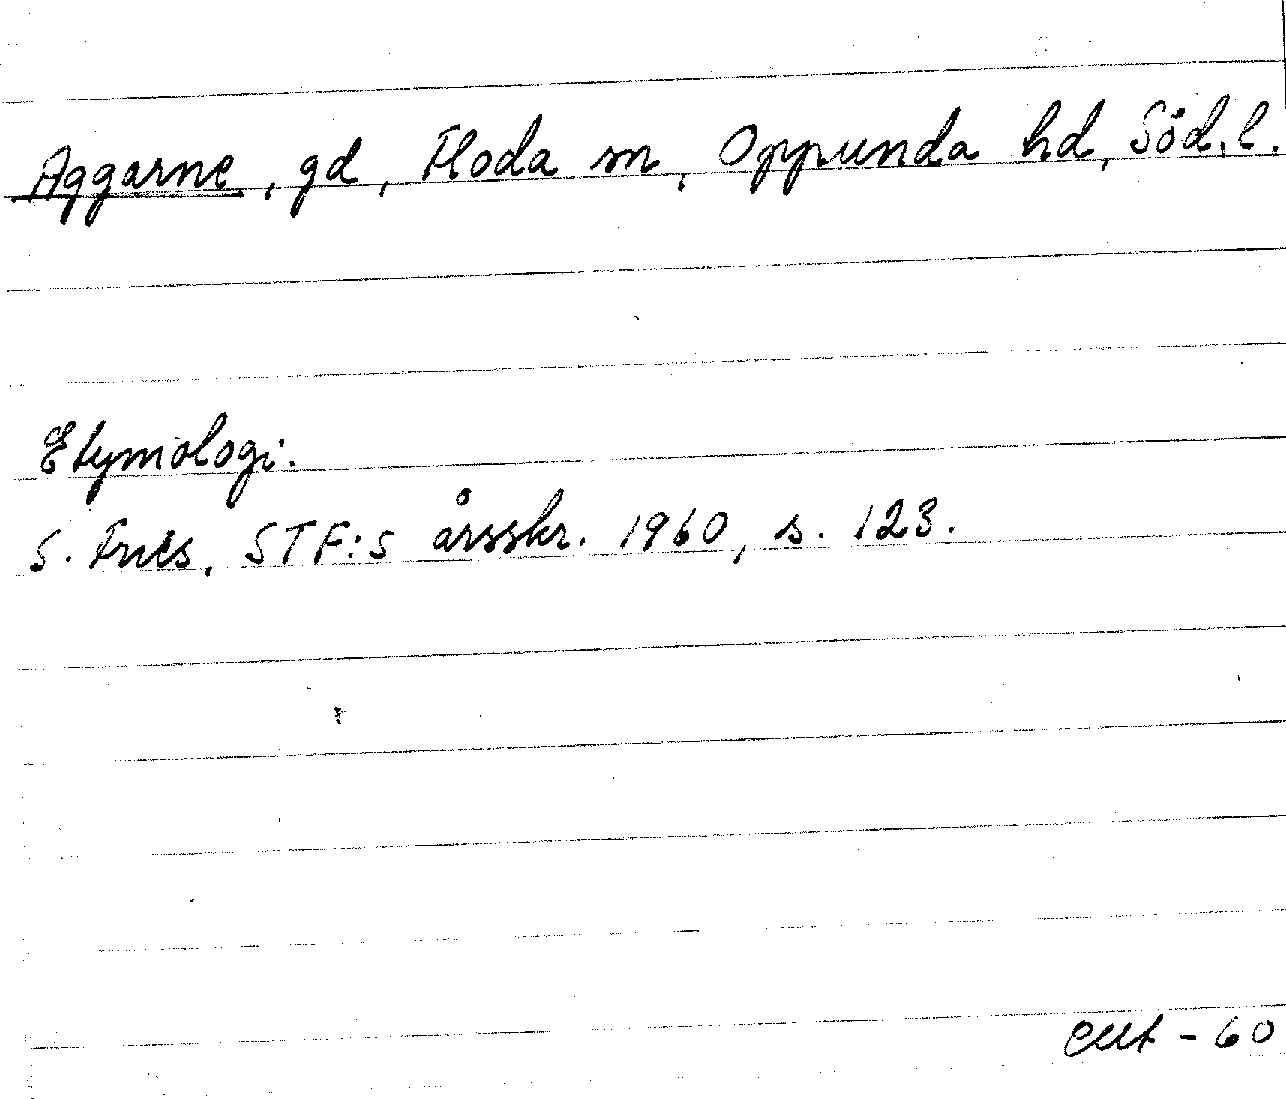 Aggarne, gd, Floda sn, Oppunda hd, Söd.l.
Etymologi:
S. Fries, STF:s årsskr. 1960, s. 123.
- 60